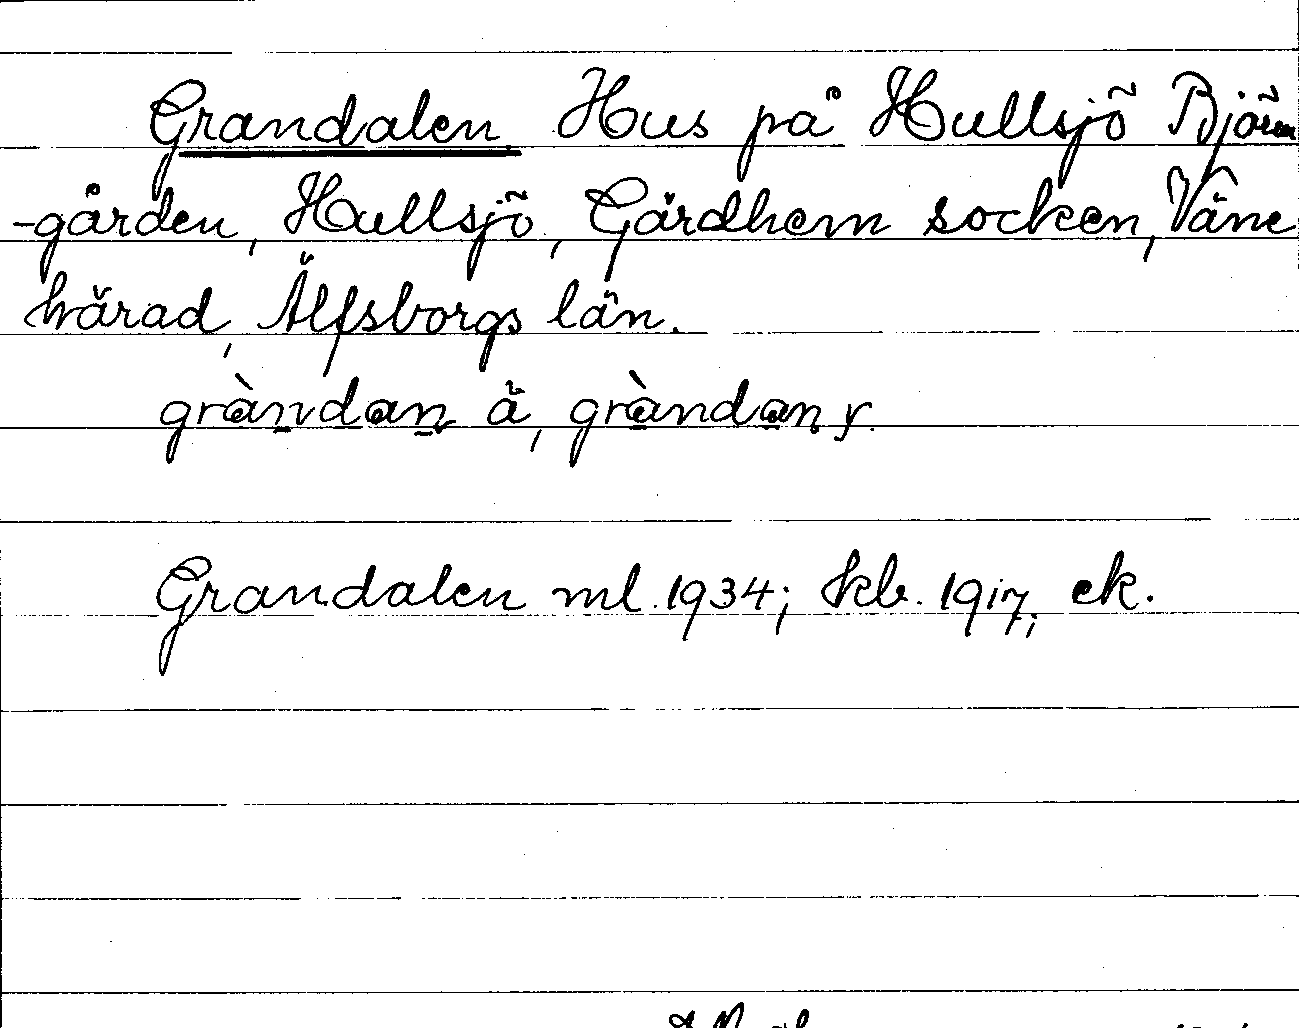 Grandalen Hus på Hullsjö Björn
-gården, Hullsjö, Gärdhem socken, Väne
härad, Älfsborgs län.
gràndan ä, gràndan y.
Grandalen ml. 1934; kb. 1917; ek.